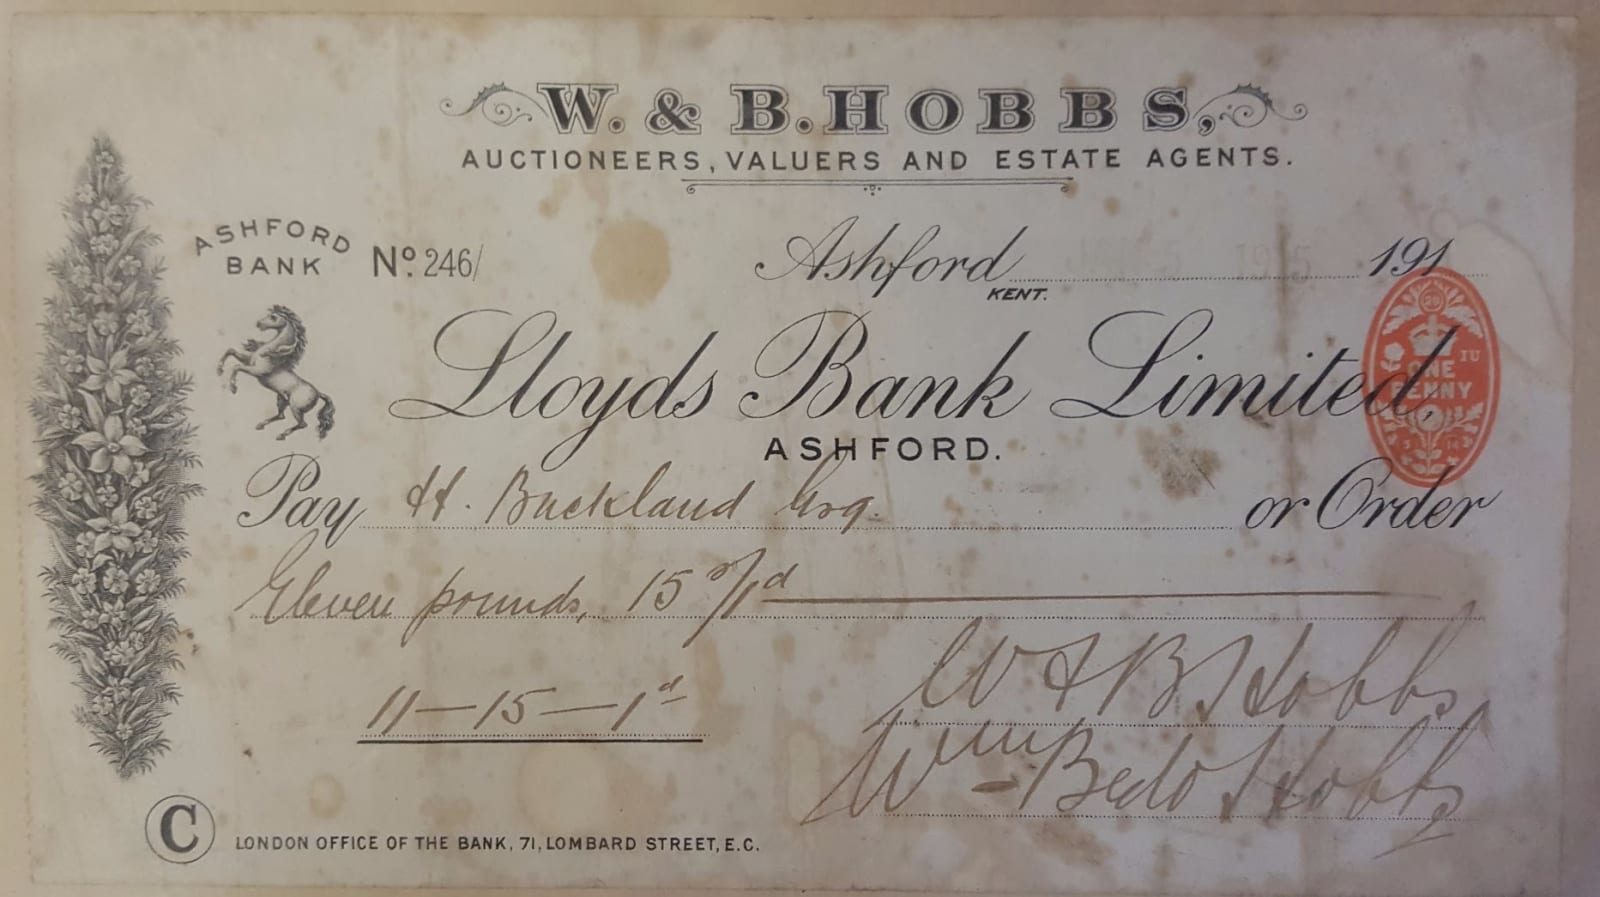 W. & B. HOBBS,
AUCTIONEERS, VALUERS AND ESTATE AGENTS.
ASHFORD
BANK
No. 246/
Ashford 191
KENT.
Lloyds Bank Limited,
ASHFORD.
ONE
PENNY
Pay H. Buckland Esq. or Order
Eleven pounds, 15 s/1d
11-15-1d
W & B Hobbs
Wm Bedo Hobbs
C
LONDON OFFICE OF THE BANK, 71, LOMBARD STREET, E.C.